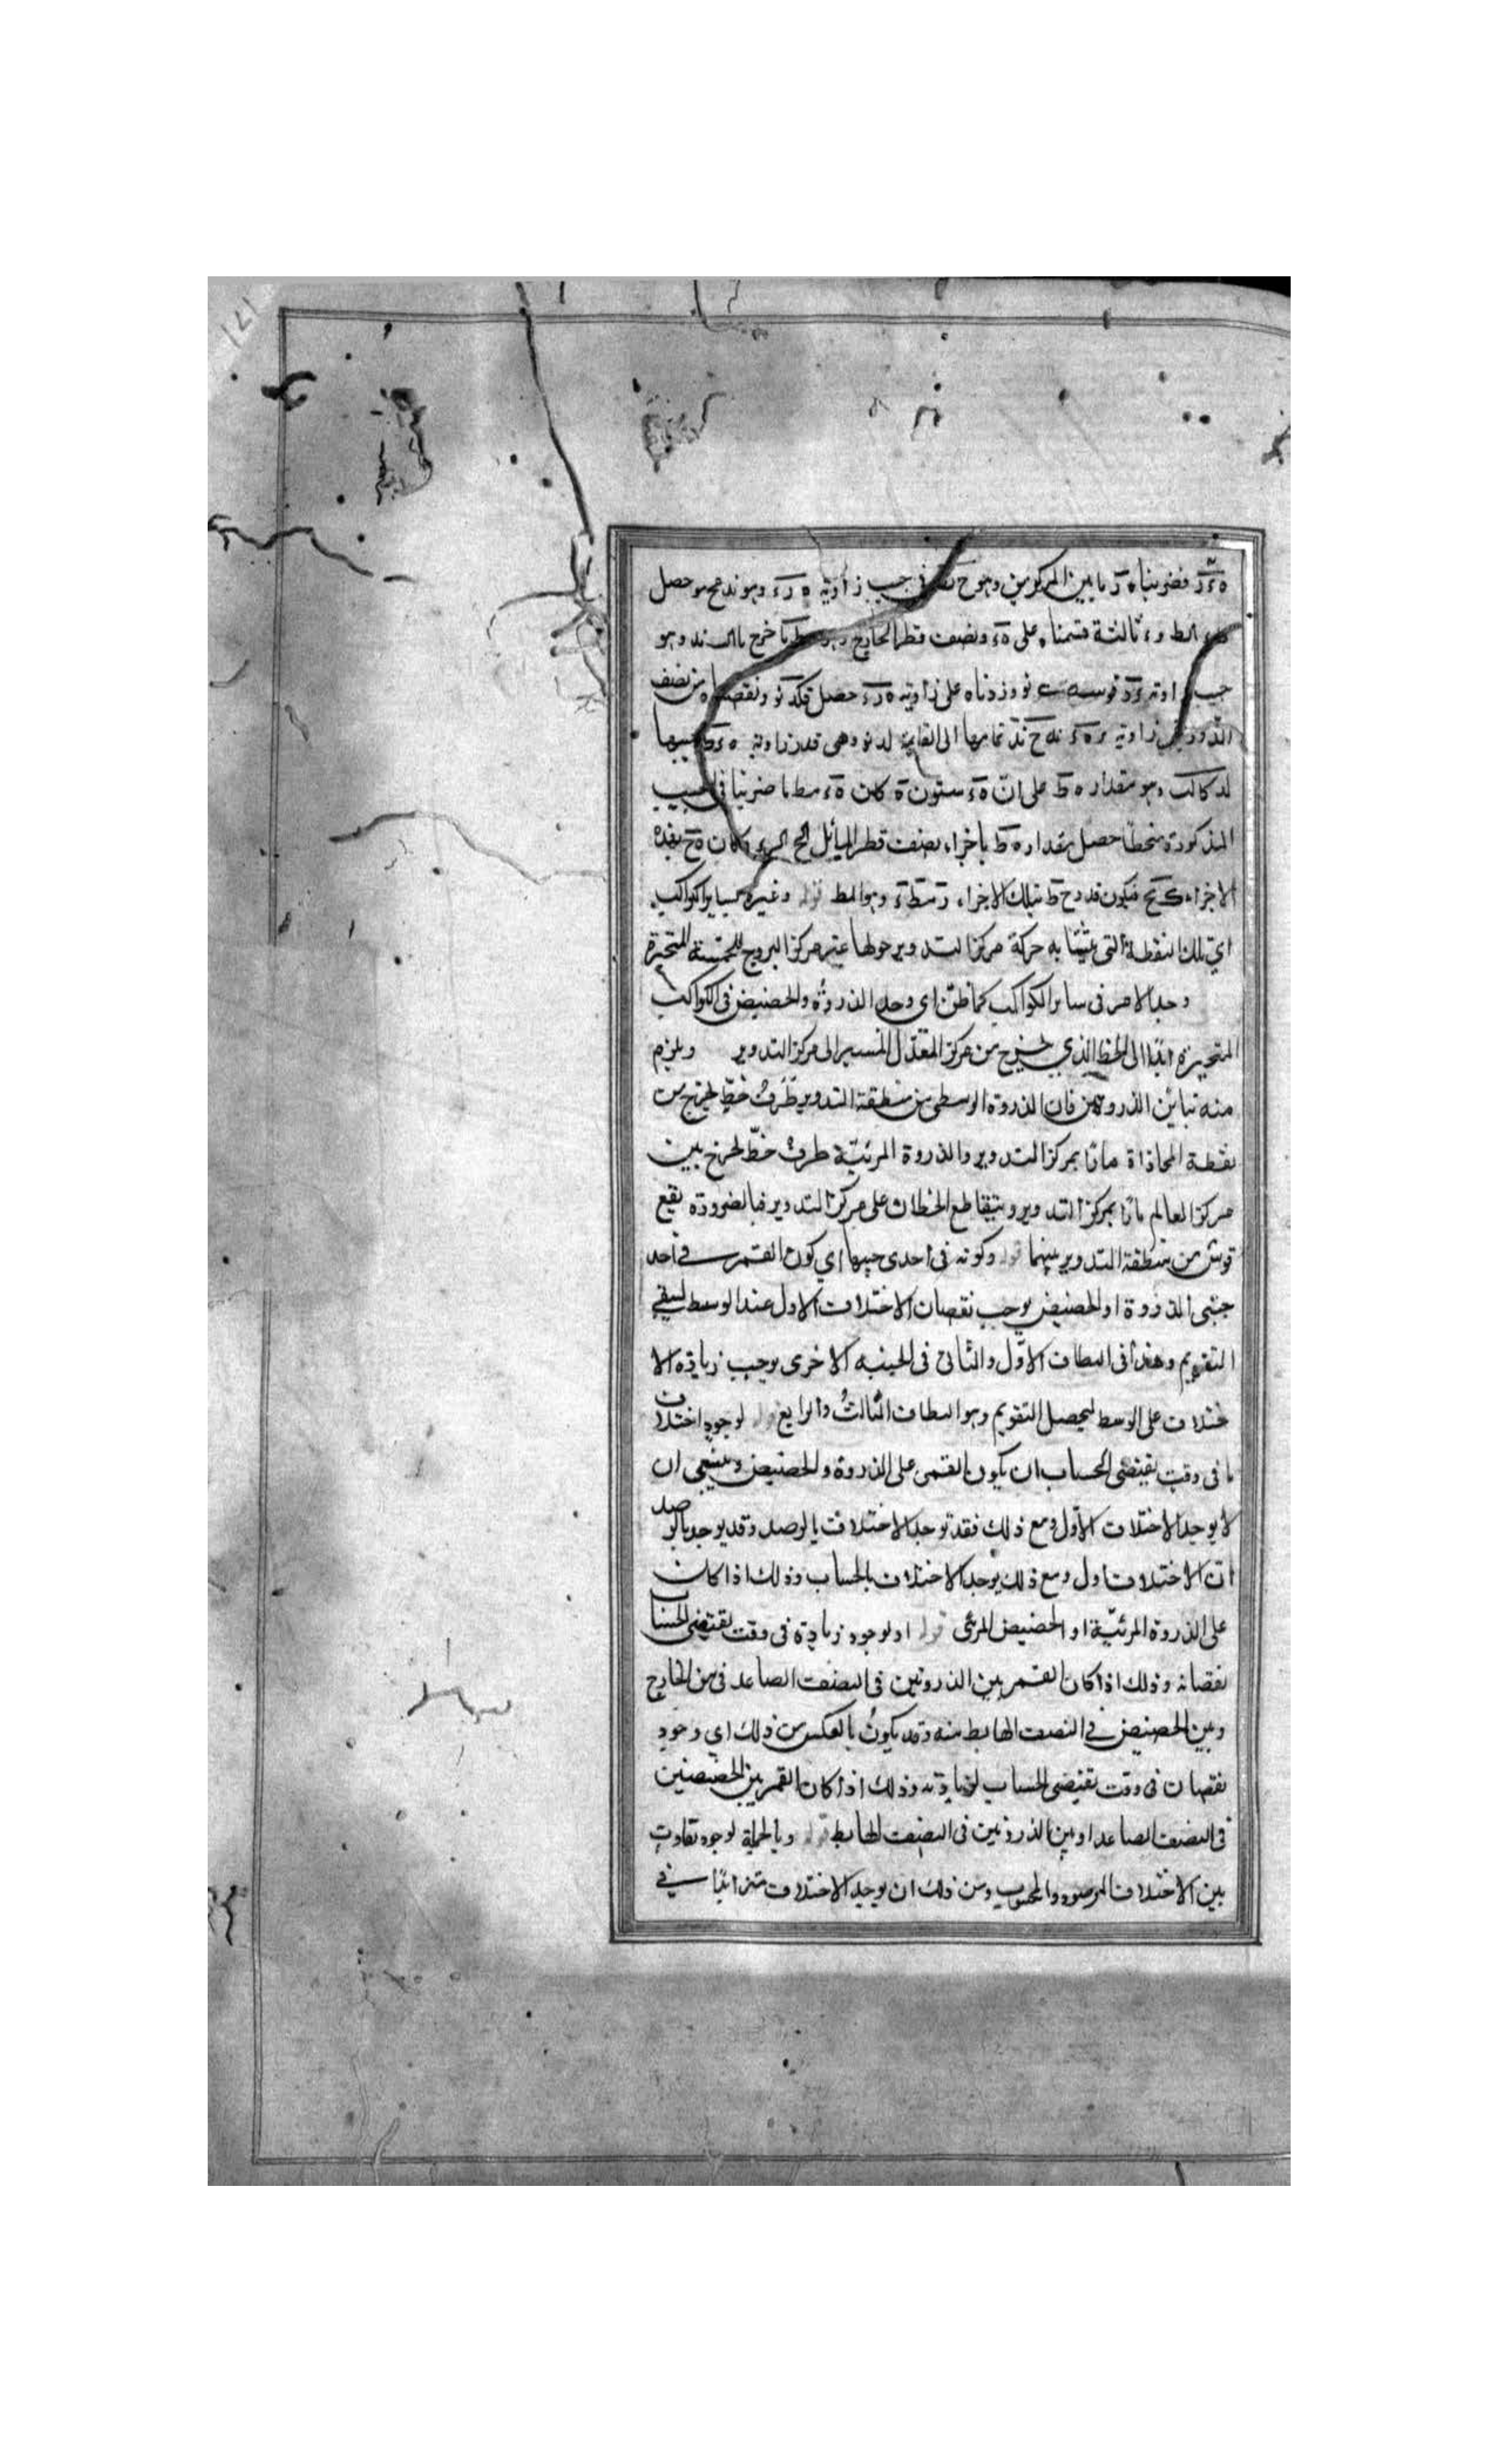 فضربناه ما بين المركزين وهو في جيب زاوية ه ر ء وهو حصل
ثالثة قسمناه على ه ء ونصف قطر الخارج خرج وهو
جيب زاوية قوسه وزدناه على زاوية ه ر ء حصل قكد نو ونقصناه من نصف
الدور بقي زاوية تمامها الى القائمة لد نو وهى قدر زاوية جيبها
وهو مقدار ه ط على ان ه ء ستون كان ضربنا في الجيب
المذكورة منحطا حصل مقدار ه ط باجزاء نصف قطر المائل وكان ه ح بهذه
الاجزاء فيكون قدر ح ط بتلك الاجزاء وهو المط قوله وغيره كساير الكواكب
اي تلك النقطة التى يتشابه حركة مركز التدوير حولها غير مركز البروج للخمسة المتحيرة
وجد الامر فى ساير الكواكب كما ظن اي وجد الذروة والحضيض فى الكواكب
المتحيرة ابدا الى الخط الذي يخرج من مركز المعدل المسير الى مركز التدوير ويلزم
منه تباين الذروتين فان الذروة الوسطى من منطقة التدوير طرف خط يخرج من
نقطة المحاذاة مارا بمركز التدوير والذروة المرئية طرف خط يخرج بين
مركز العالم مارا بمركز التدوير ويتقاطع الخطان على مركز التدوير فبالضرورة يقع
قوس من منطقة التدوير بينهما قوله وكونه فى احدى جنبيها اي كون القمر في احد
جنبى الذروة او الحضيض يوجب نقصان الاختلاف الاول عند الوسط ليبقى
التقويم وهذا فى النطاق الاول والثانى فى الجنبه الاخرى يوجب زيادة الا
ختلاف على الوسط ليحصل التقويم وهو النطاق الثالث والرابع قوله لوجود اختلاف
ما فى وقت يقتضى الحساب ان يكون القمر على الذروة والحضيض وينبغى ان
لا يوجد الاختلاف الاول ومع ذلك فقد توجد الاختلاف بالرصد وقد يوجد بالرصد
ان الاختلاف اول ومع ذلك يوجد الاختلاف بالحساب وذلك اذا كان
على الذروة المرئية او الحضيض المرئى قوله او لوجود زيادة فى وقت يقتضى الحساب
نقصانه وذلك اذا كان القمر بين الذروتين فى النصف الصاعد فى من الخارج
وبين الحضيض في النصف الهابط منه وقد يكون بالعكس من ذلك اي وجود
نقصان فى وقت يقتضى الحساب لزيادته وذلك اذا كان القمر بين الحضيضين
فى النصف الصاعد او بين الذروتين فى النصف الهابط قوله وبالجملة لوجود تفاوت
بين الاختلاف المرصود والمحسوب ومن ذلك ان يوجد الاختلاف متزايدا في